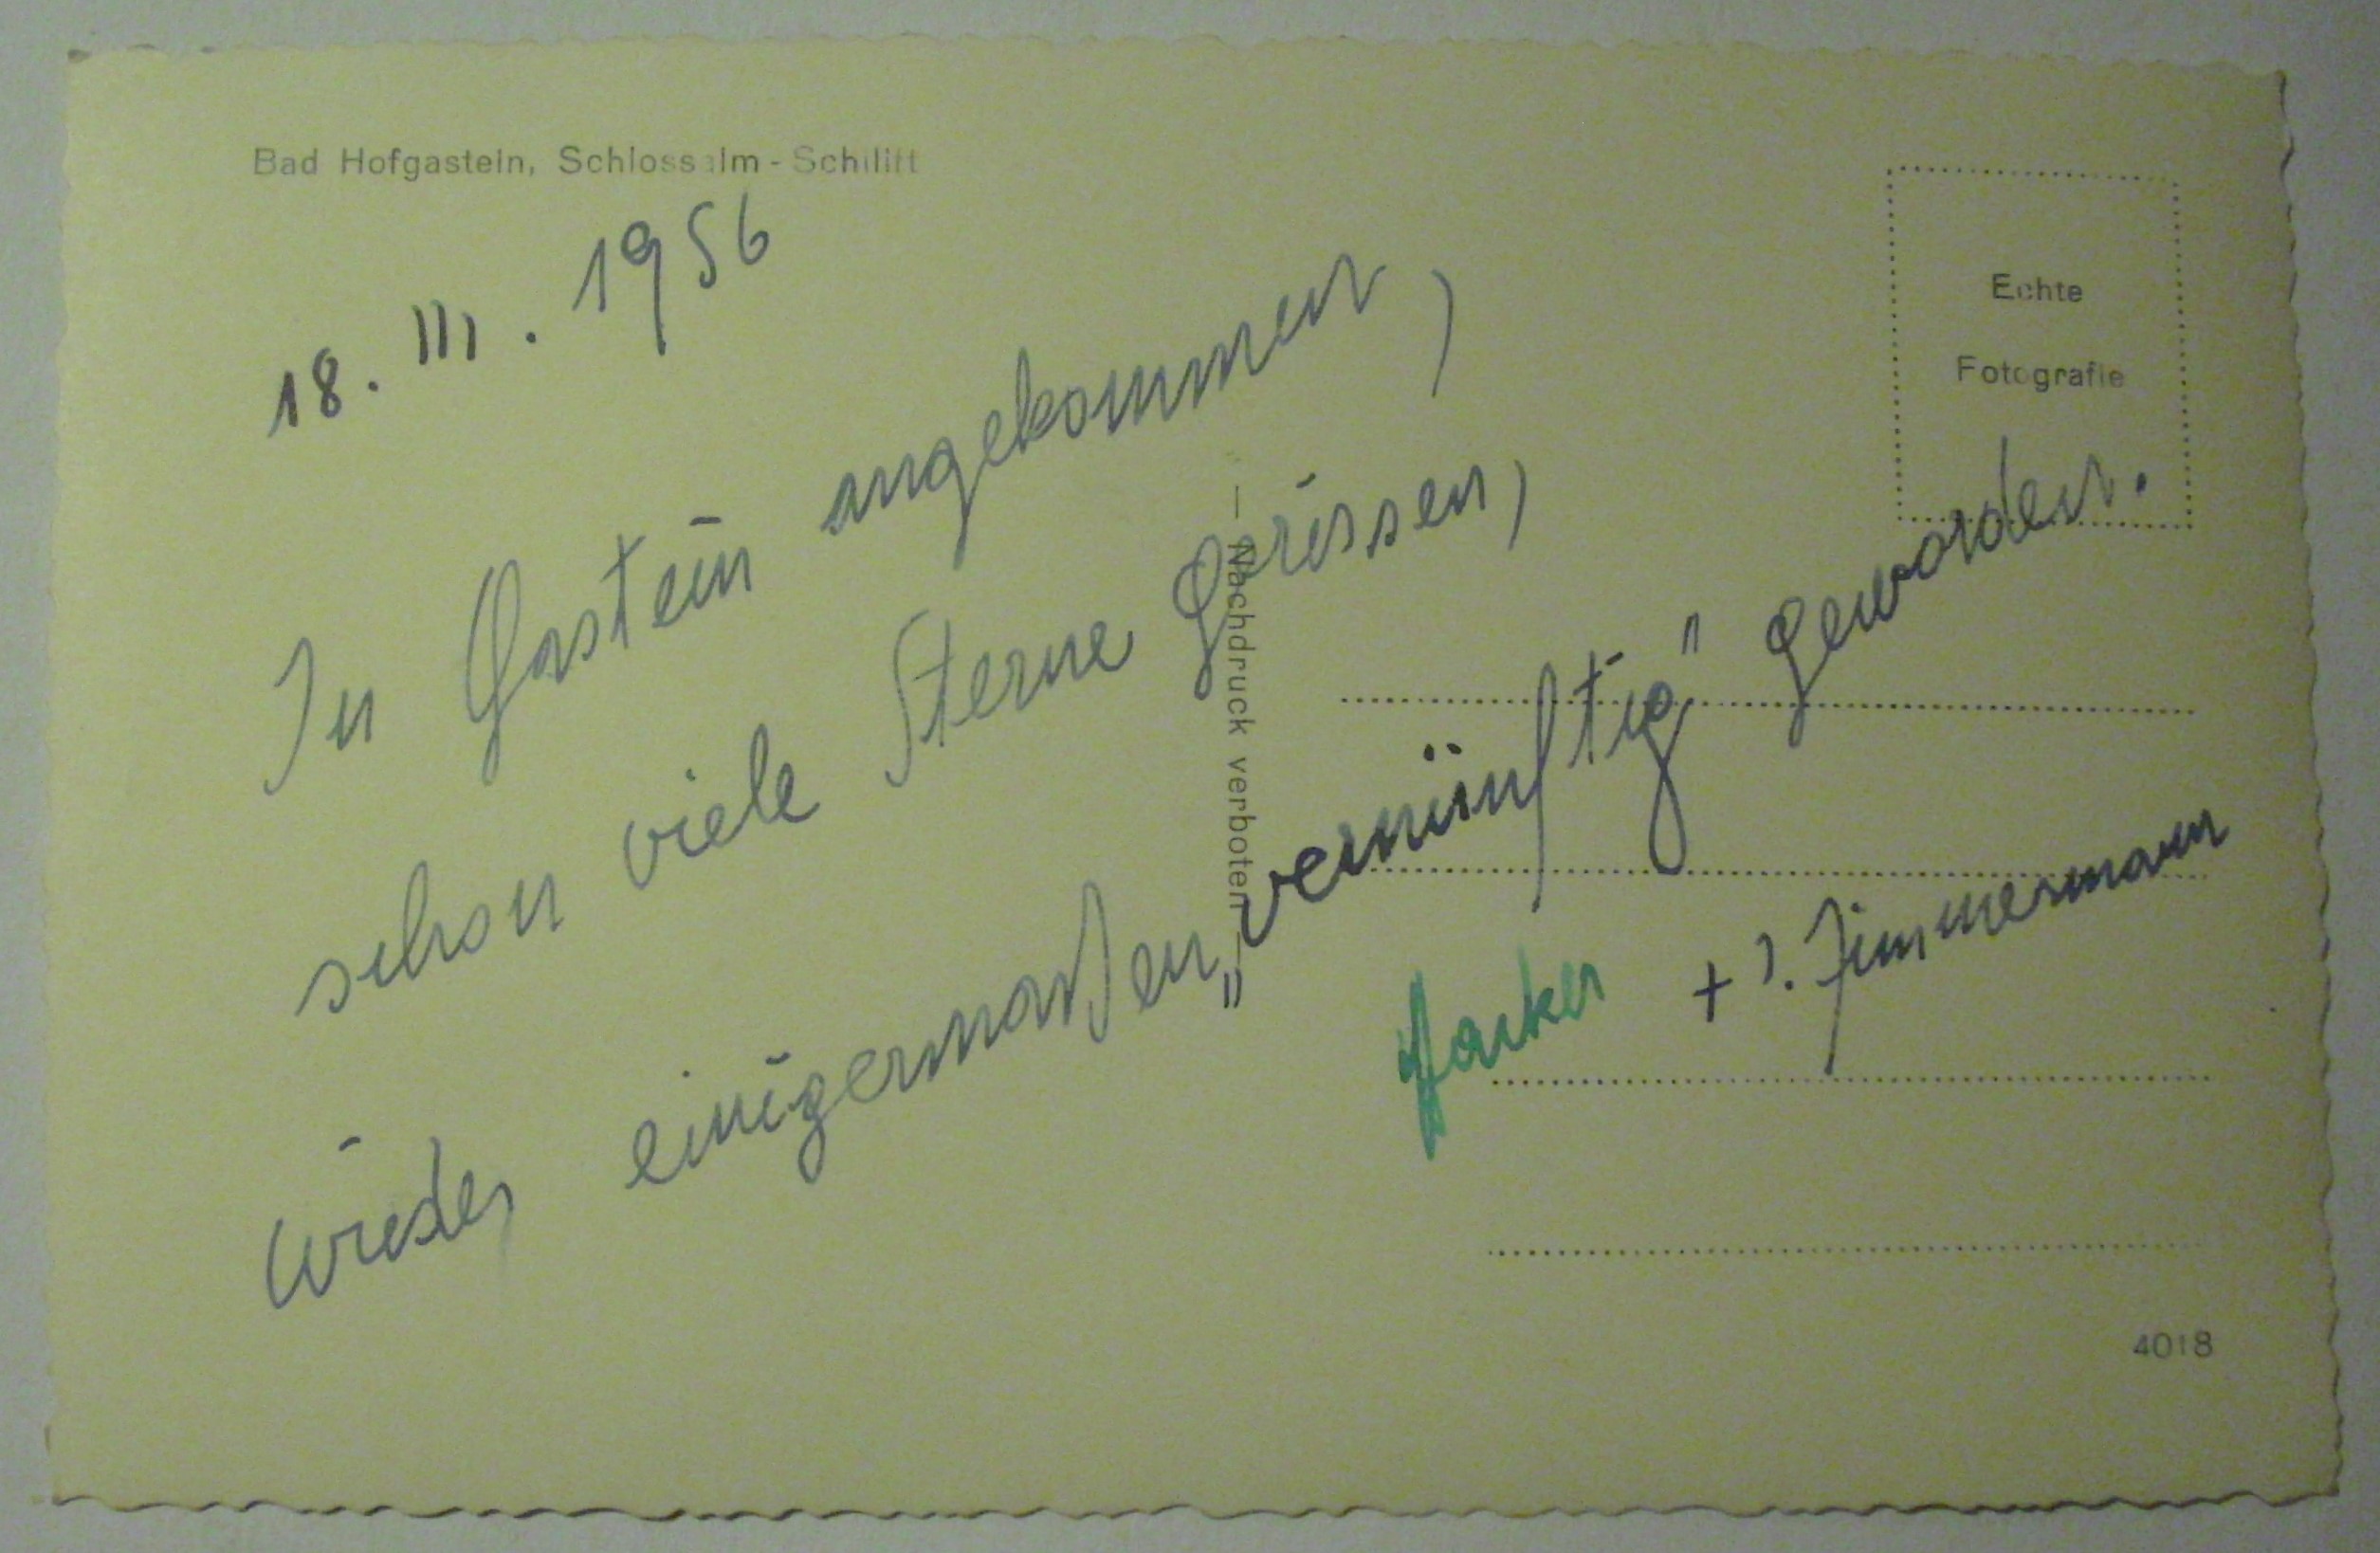 Bad Hofgastein, Schlossalm - Schilift
18. III. 1956
Echte
Fotografie
In Gastein angekommen,
schon viele Sterne grüssen,
wieder einigermaßen „vernünftig" geworden.
+ J. Zimmermann
— Nachdruck verboten —
4018